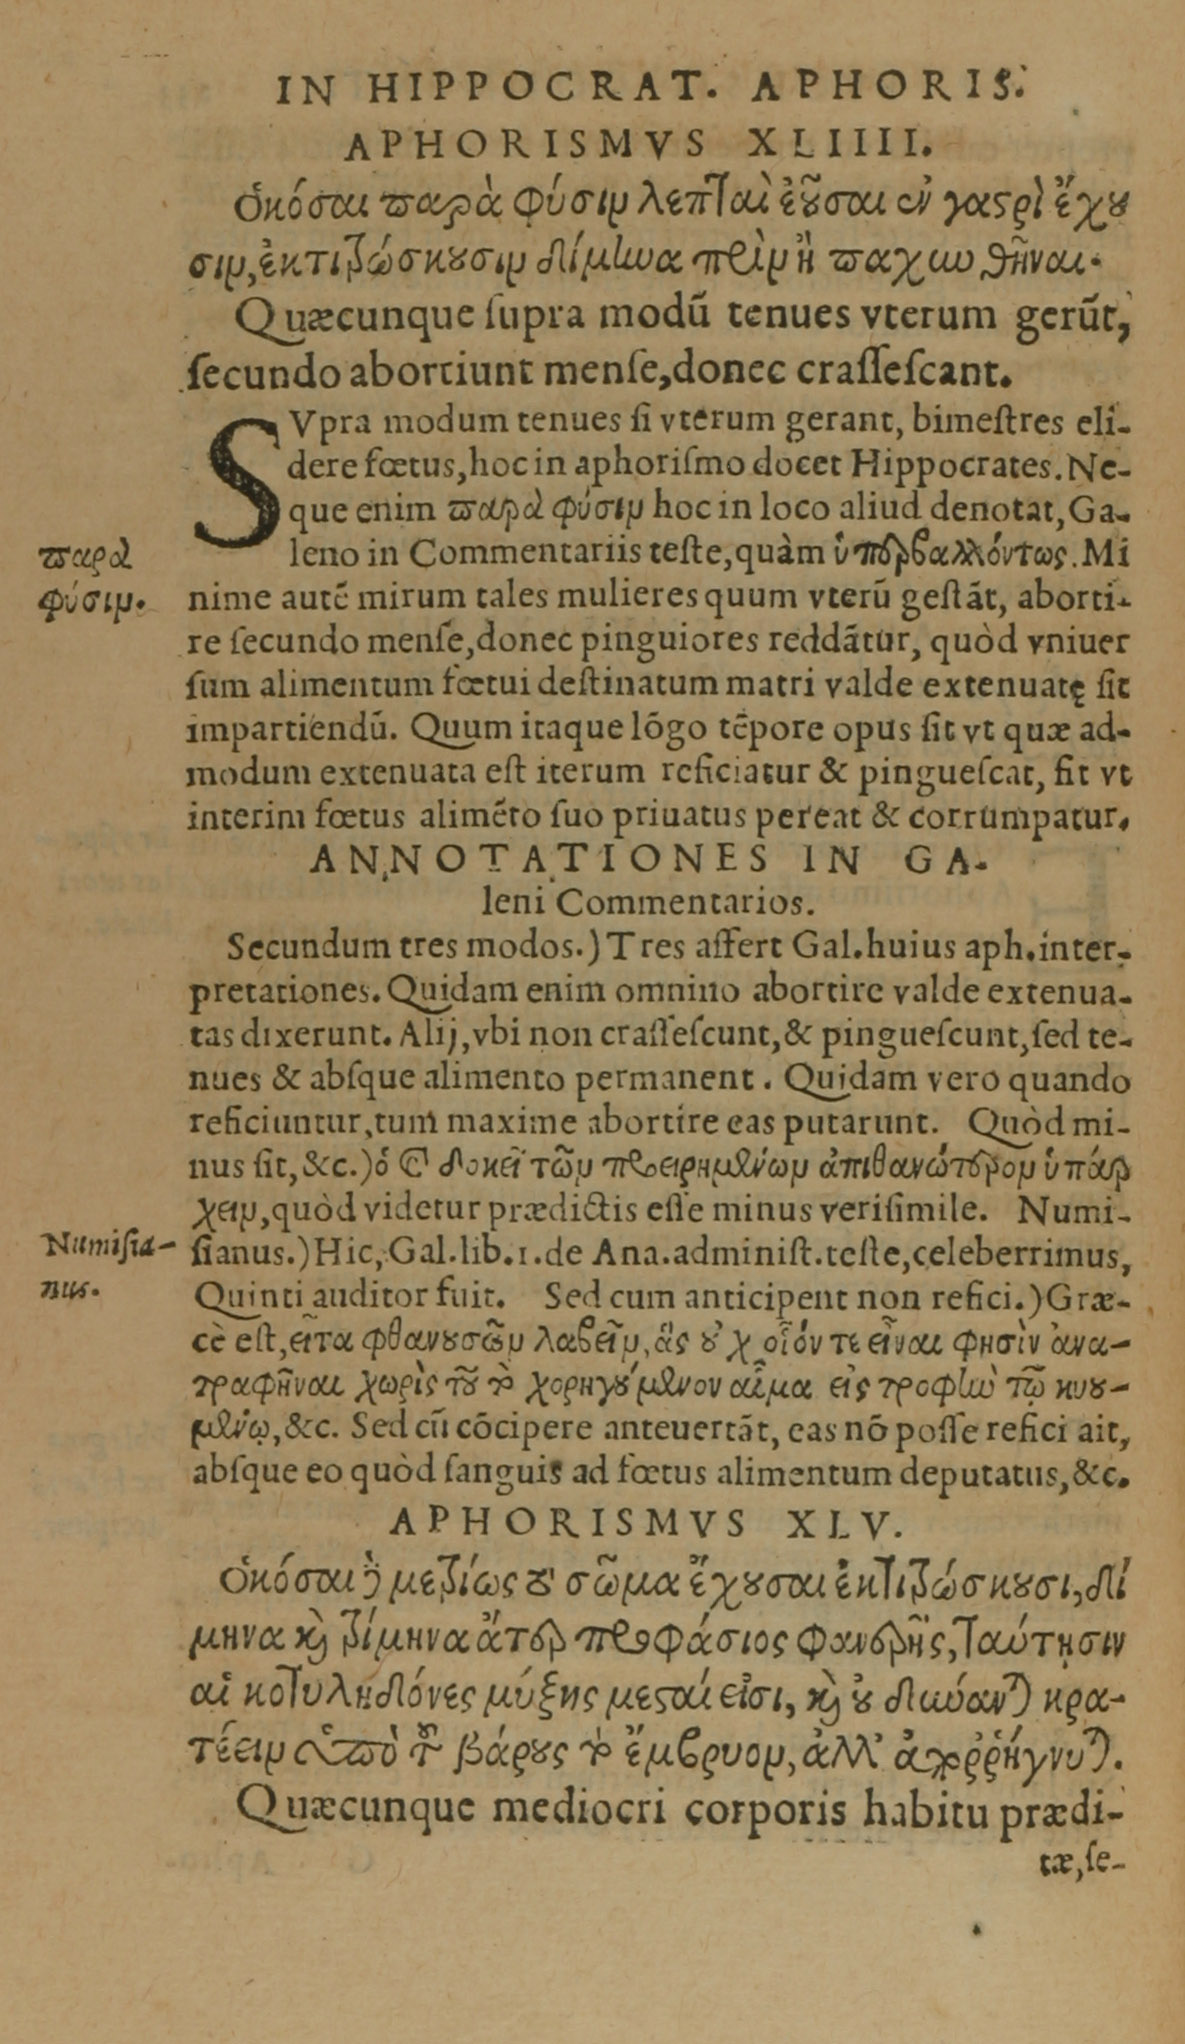 IN HIPPOCRAT. APHORIS.
APHORISMVS XLIIII.
Ὁκόσαι παρὰ φύσιν λεπταὶ ἐοῦσαι ἐν γαστρὶ ἔχου
σιν, ἐκτιτρώσκουσιν δίμηνα πρὶν ἢ παχυνθῆναι.
Quæcunque ſupra modū tenues vterum gerūt,
ſecundo abortiunt menſe, donec craſſeſcant.
SVpra modum tenues ſi vterum gerant, bimeſtres eli-
dere fœtus, hoc in aphoriſmo docet Hippocrates. Ne-
que enim παρὰ φύσιν hoc in loco aliud denotat, Ga-
leno in Commentariis teſte, quàm ὑπερβαλλόντως. Mi
παρὰ
φύσιν.
nime autē mirum tales mulieres quum vterū geſtāt, aborti-
re ſecundo menſe, donec pinguiores reddātur, quòd vniuer
ſum alimentum fœtui deſtinatum matri valde extenuatę ſit
impartiendū. Quum itaque lōgo tēpore opus ſit vt quæ ad-
modum extenuata eſt iterum reficiatur & pingueſcat, fit vt
interim fœtus alimēto ſuo priuatus pereat & corrumpatur.
ANNOTATIONES IN GA-
leni Commentarios.
Secundum tres modos.) Tres affert Gal. huius aph. inter-
pretationes. Quidam enim omnino abortire valde extenua-
tas dixerunt. Alij, vbi non craſſeſcunt, & pingueſcunt, ſed te-
nues & abſque alimento permanent. Quidam vero quando
reficiuntur, tum maxime abortire eas putarunt. Quòd mi-
nus ſit, &c.) ὅ καὶ δοκεῖ τῶν προειρημένων ἀπιθανώτερον ὑπάρ
χειν, quòd videtur prædictis eſſe minus veriſimile. Numi-
ſianus.) Hic, Gal. lib. 1. de Ana. adminiſt. teſte, celeberrimus,
Numiſia-
nus.
Quinti auditor fuit. Sed cum anticipent non refici.) Græ-
cè eſt, εἶτα φθανουσῶν λαβεῖν, ἃς οὐχ οἷόν τε εἶναι φησὶν ἀνα-
τραφῆναι χωρὶς τοῦ τὸ χορηγούμενον αἷμα εἰς τροφὴν τῷ κυου-
μένῳ, &c. Sed cū cōcipere anteuertāt, eas nō poſſe refici ait,
abſque eo quòd ſanguis ad fœtus alimentum deputatus, &c.
APHORISMVS XLV.
Ὁκόσαι δὲ μετρίως τὸ σῶμα ἔχουσαι ἐκτιτρώσκουσι, δί
μηνα καὶ τρίμηνα ἄτερ προφάσιος φανερῆς, ταύτῃσιν
αἱ κοτυληδόνες μύξης μεσταί εἰσι, καὶ οὐ δύνανται κρα-
τέειν ὑπὸ τοῦ βάρους τὸ ἔμβρυον, ἀλλ' ἀπορρήγνυται.
Quæcunque mediocri corporis habitu prædi-
tæ, ſe-